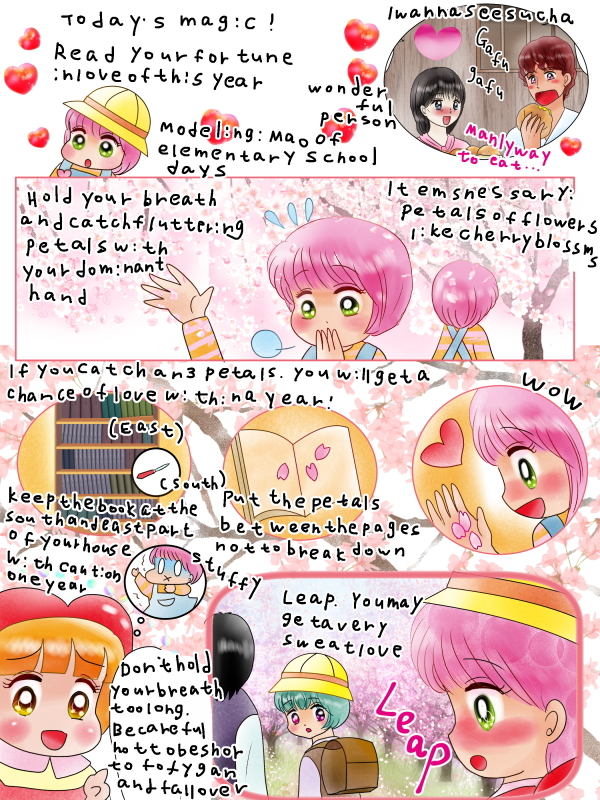 Today's magic!
Read your fortune
inloveofthis year
Modeling: Mao of
elementary school
days
Iwannaseesucha
wonder
ful
person
Gafu
gafu
Manlyway
to eat...
Hold your breath
and catch fluttering
petals with
your dominant
hand
Itemsnessary:
petals of flowers
like cherryblossm
s
If you catch an3 petals. you will get a
chance of love within a year!
(East)
(South)
keep the book at the
south and east part
of your house
with caution
one year
Put the petals
between the pages
not to break down
wow
stuffy
Don't hold
your breath
too long.
Be careful
nott obe shor
to fofygan
and fall over
Leap. You may
get a very
sweat love
Leap